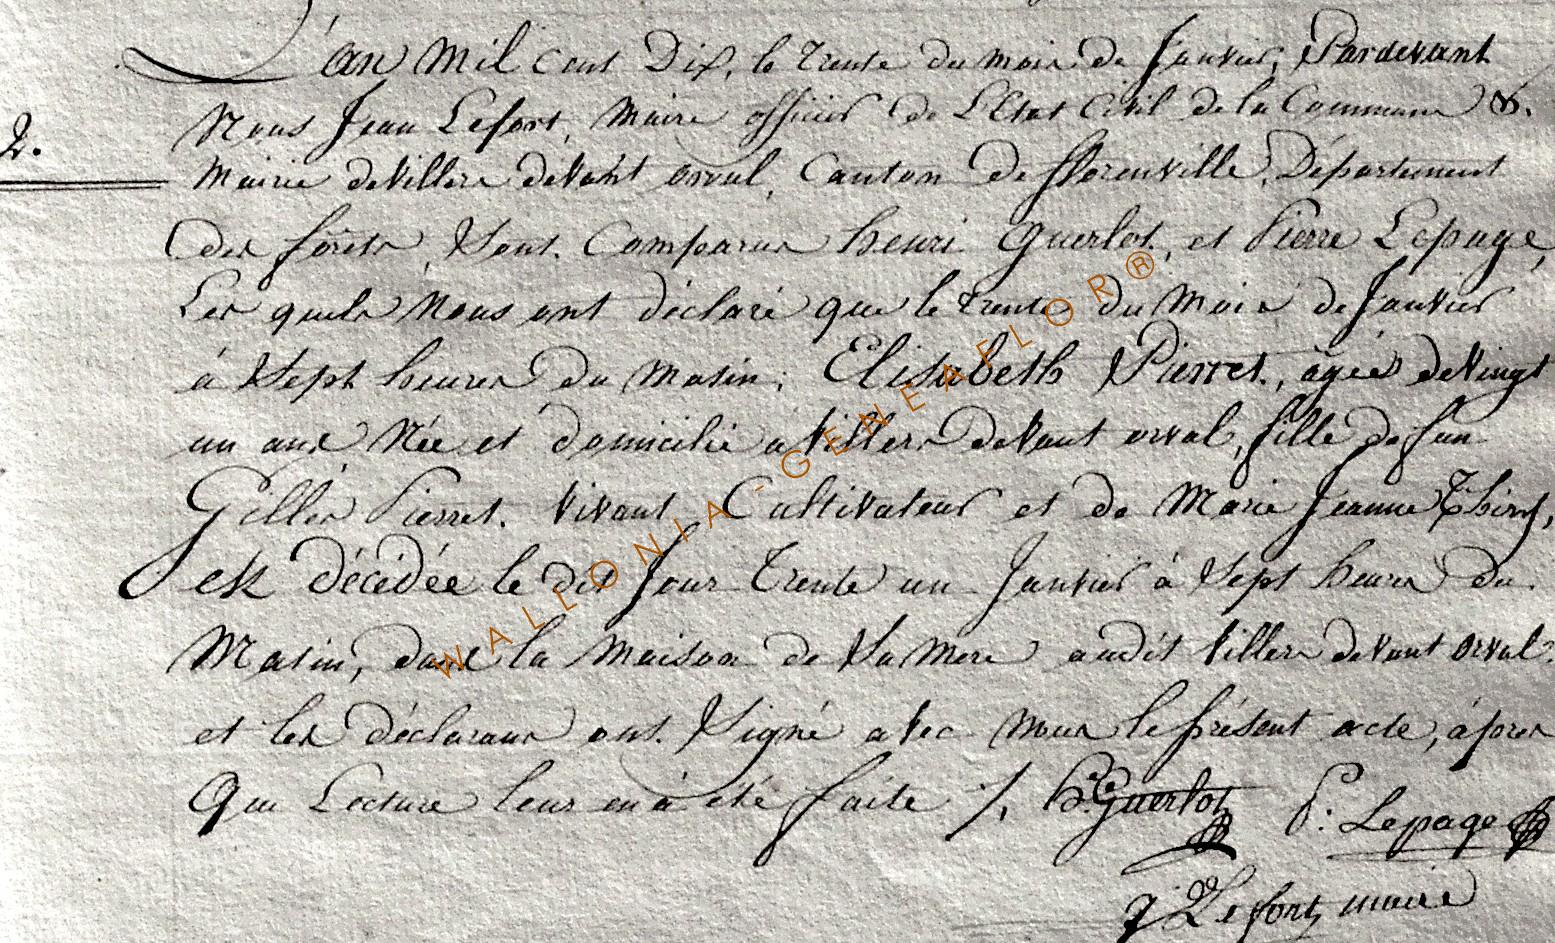 L'an Mil cent Dix, le trente du mois de Janvier, Pardevant
Nous Jean Lefort, Maire officier de L'Etat Civil de la Commune &.
2.
Mairie de Villers devant orval, Canton de fflorenville, Département
des forêts, Sont Comparus henri Guerlot, et Pierre Lepage,
Les quels Nous ont déclaré que le trente du Mois de Janvier
à Sept heures du Matin, Elisabeth Pierret, agée de Vingt
un ans Née et domicilié a Villers devant orval, fille de fun
Gilles Pierret. Vivant Cultivateur et de Marie Jeanne Thiry,
est décédée le dit Jour Trente un Janvier à Sept heures du
Matin, dans la Maison de Sa Mere audit Villers devant Orval.
et les déclarans ont Signé avec Nous le présent acte, àpres
Que Lecture leur en à été faite /. h. Guerlot P: Lepage
J Lefort maire
WALLONIA-GENEAFLOR®